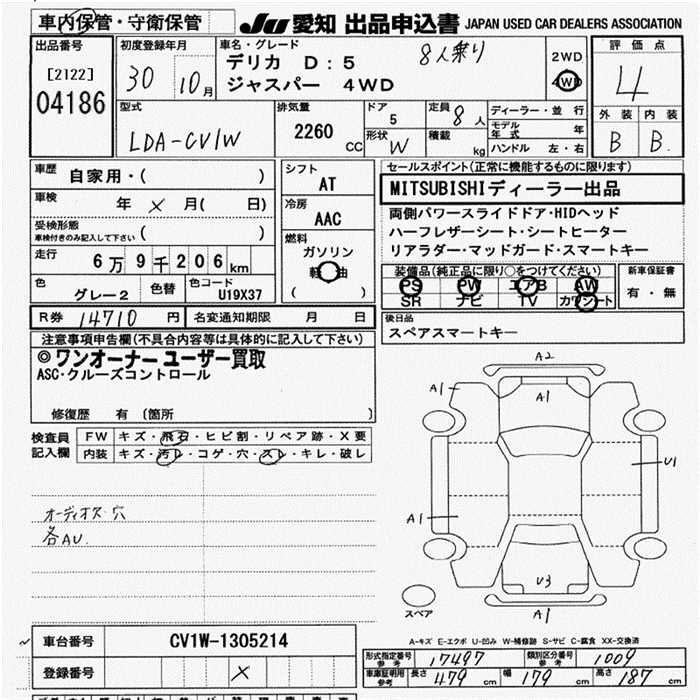 車内保管・守衛保管
JU 愛知 出品申込書 JAPAN USED CAR DEALERS ASSOCIATION
出品番号
[2122]
04186
初度登録年月
30 10月
車名・グレード
デリカ D:5
ジャスパー 4WD
8人乗り
2WD
4WD
評価点
4
外装 内装
B B.
型式
LDA-CV1W
排気量
2260 CC
ドア
5
形状 W
定員 8 人
積載 kg
ディーラー・並行
モデル年式 年
ハンドル 左・右
車歴
自家用・( )
車検
年 × 月( 日)
受検形態
車検付きのみ記入して下さい ( )
走行
6万9千206km
色
グレー2
色替
色コード
U19X37
シフト
AT
冷房
AAC
燃料
ガソリン
軽油
( )
セールスポイント(正常に機能するものに限ります)
MITSUBISHIディーラー出品
両側パワースライドドア・HIDヘッド
ハーフレザーシート・シートヒーター
リアラダー・マッドガード・スマートキー
装備品(純正品に限り○をつけてください)
PS PW エアB AW
SR ナビ TV カワシート
新車保証書
有・無
R券 14710 円 名変通知期限 月 日
後日品
スペアスマートキー
注意事項申告欄(不具合内容等は具体的に記入して下さい)
◎ワンオーナー ユーザー買取
ASC・クルーズコントロール
修復歴 有 (箇所 )
検査員
記入欄
FW キズ・飛石・ヒビ割・リペア跡・X要
内装 キズ・汚レ・コゲ・穴・スレ・キレ・破レ
オーディオス.穴
各AU.
A2
A1
A1
U1
A1
U3
A1
スペア
A-キズ E-エクボ U-凹み W-補修跡 S-サビ C-腐食 XX-交換済
車台番号 CV1W-1305214
登録番号 ×
形式指定番号 参考 17497 類別区分番号 参考 1009
車庫証明用 参考 長さ 479 cm 幅 179 cm 高さ 187 cm